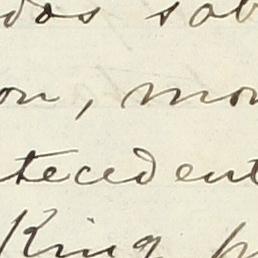 dos sob
on, mon
tecedent
King p